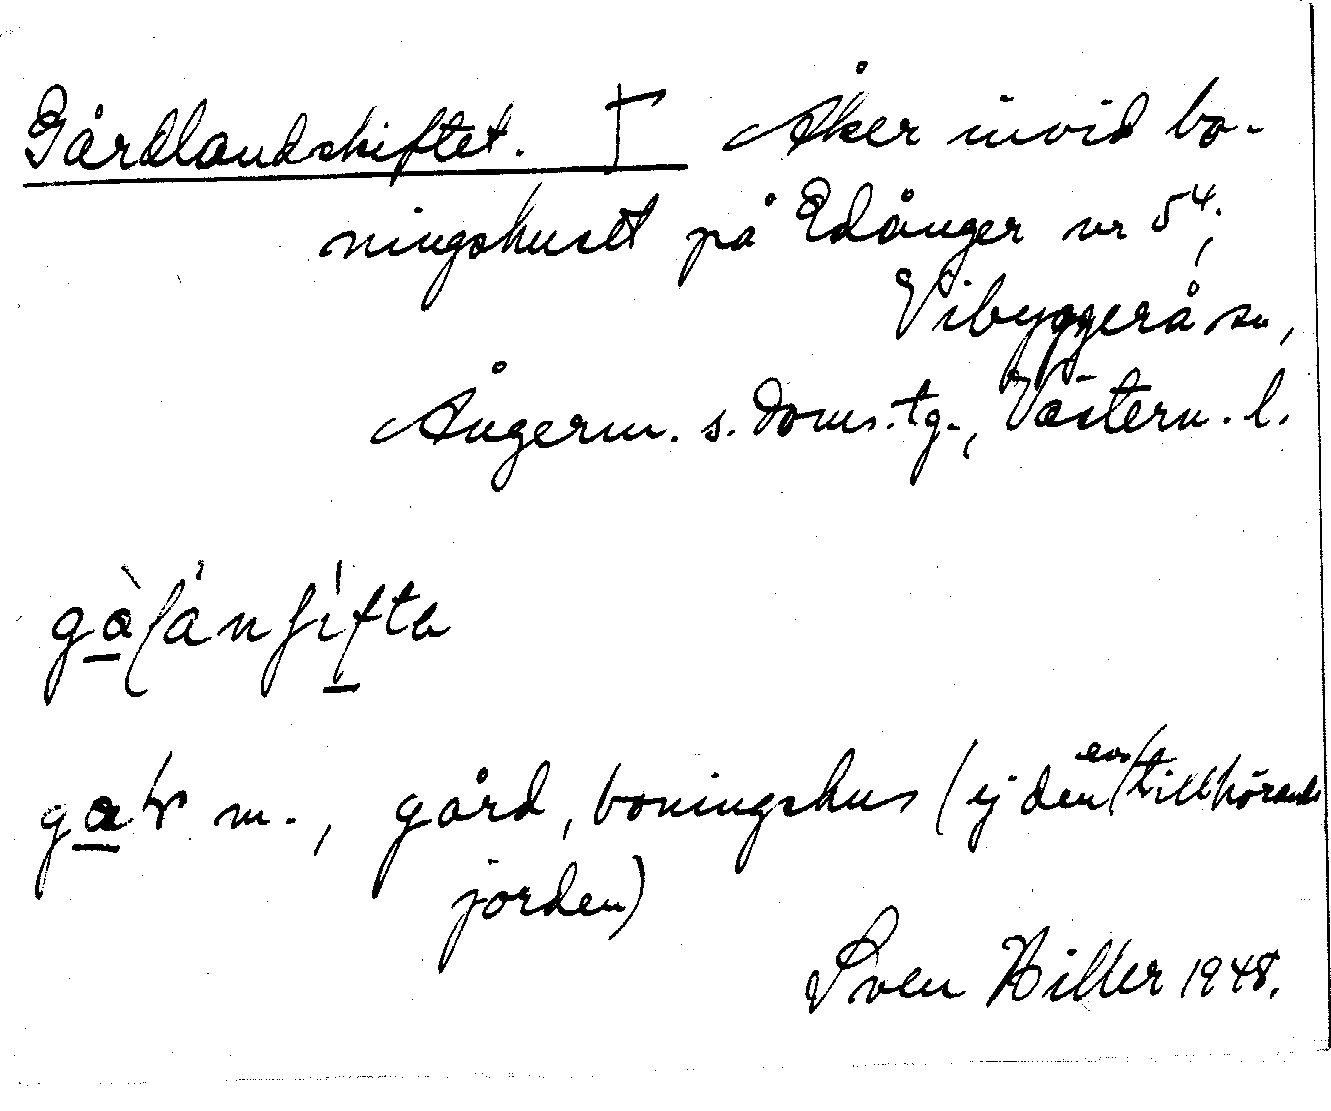 Gårdlandskiftet. † Åker invid bo-
ningshuset på Edånger nr 5⁴,
Vibyggerå sn,
Ångerm. s. doms.-tg., Västern. l.
m., gård, boningshus (ej den ev. tillhörande
jorden)
Sven Hiller 1948.